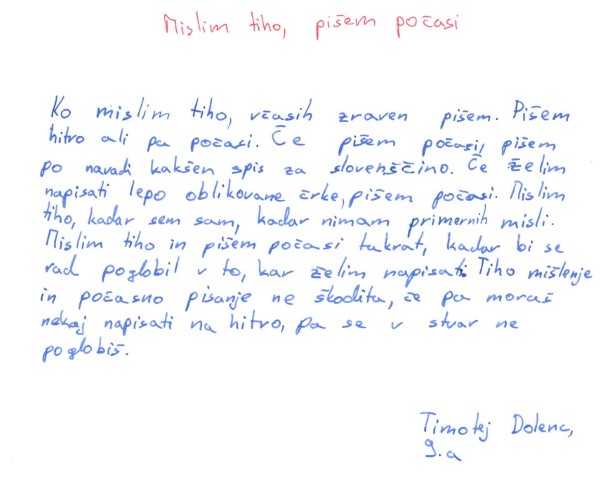 Mislim tiho, pišem počasi
Ko mislim tiho, včasih zraven pišem. Pišem
hitro ali pa počasi. Če pišem počasi, pišem
po navadi kakšen spis za slovenščino. Če želim
napisati lepo oblikovane črke, pišem počasi. Mislim
tiho, kadar sem sam, kadar nimam primernih misli.
Mislim tiho in pišem počasi takrat, kadar bi se
rad poglobil v to, kar želim napisati. Tiho mišlenje
in počasno pisanje ne škodita, če pa moraš
nekaj napisati na hitro, pa se v stvar ne
poglobiš.
Timotej Dolenc,
9.a